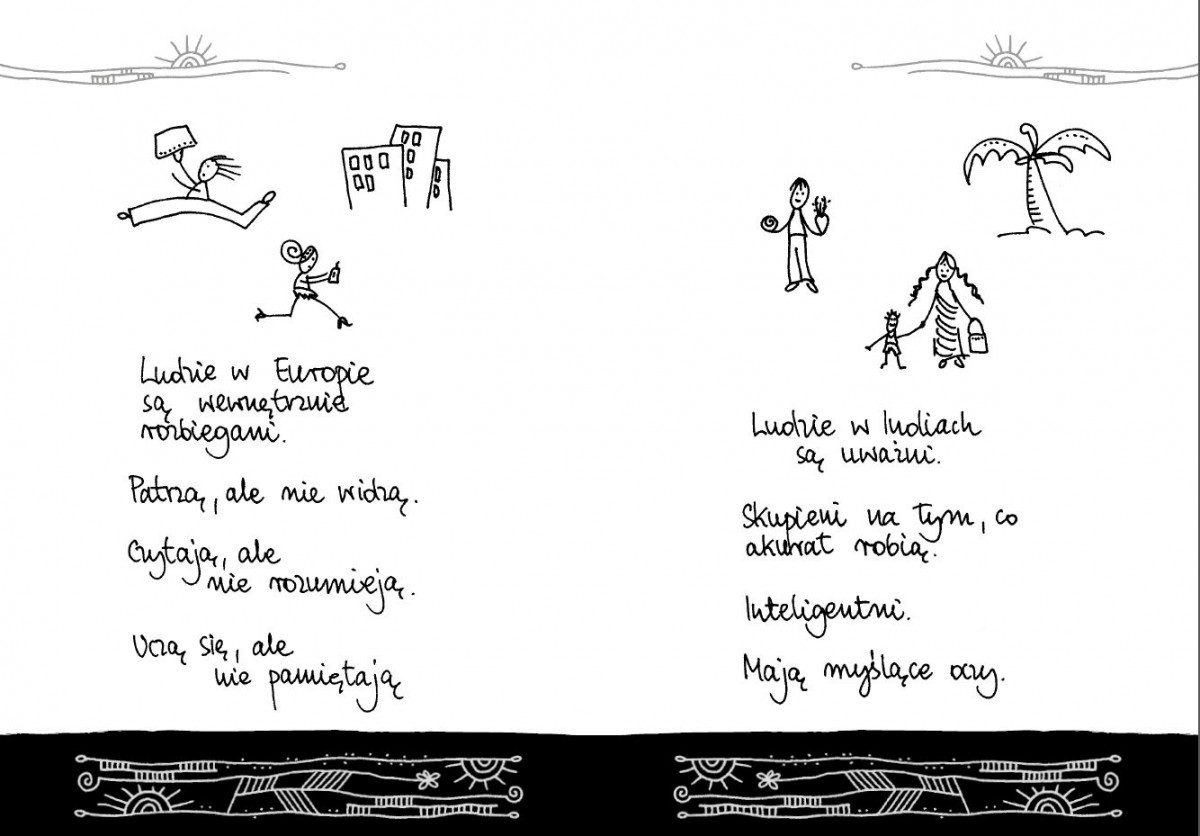 Ludzie w Europie
są wewnętrznie
rozbiegani.
Patrzą, ale nie widzą.
Czytają, ale
nie rozumieją.
Uczą się, ale
nie pamiętają
Ludzie w Indiach
są uważni.
Skupieni na tym, co
akurat robią.
Inteligentni.
Mają myślące oczy.